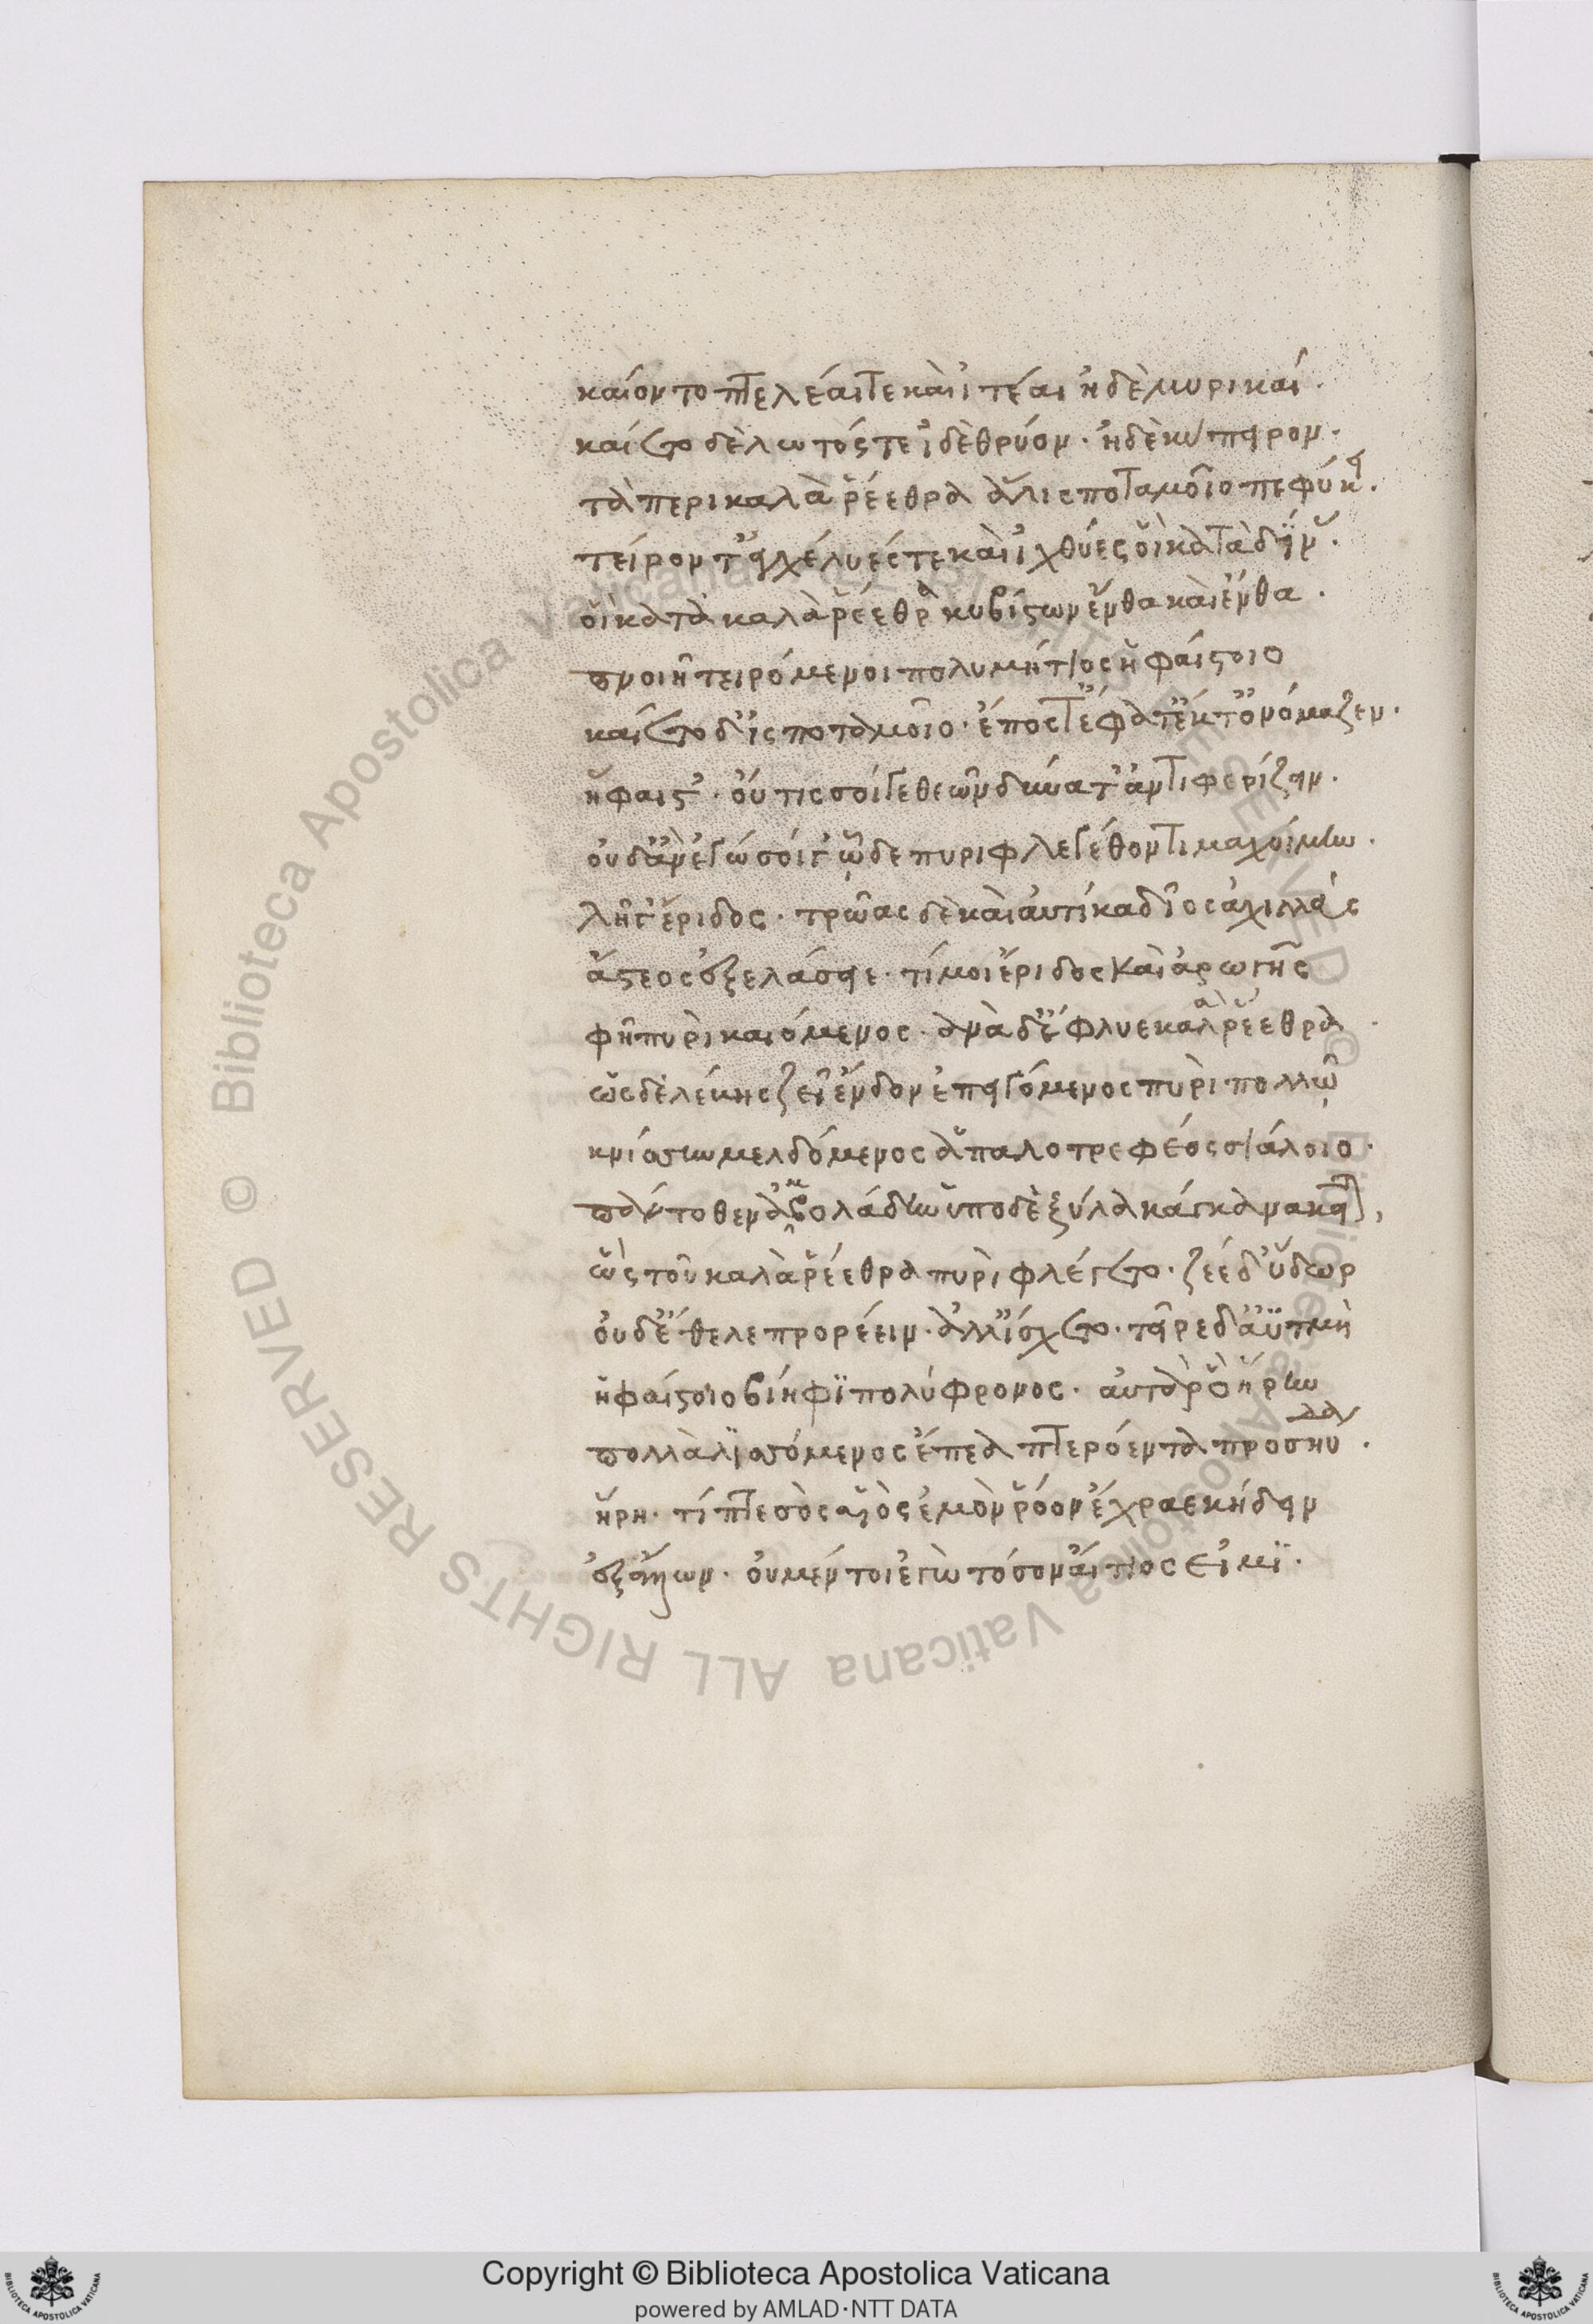 καίοντο πτελέαι τε καὶ ἰτέαι ἠδὲ μυρικαί.
καίετο δὲ λωτός τε ἰδὲ θρύον· ἠδὲ κύπειρον.
τὰ περικαλὰ ῥέεθρα ἅλις ποταμοῖο πεφύκει.
τείροντ' ἐγχέλυές τε καὶ ἰχθύες οἳ κατὰ δίνας.
οἳ κατὰ καλὰ ῥέεθρα κυβίστων ἔνθα καὶ ἔνθα.
πνοιῆ τειρόμενοι πολυμήτιος ἡφαίστοιο
καίετο δ' ἲς ποταμοῖο· ἔπος τ' ἔφατ' ἔκ τ' ὀνόμαζεν.
ἥφαιστ'· οὔτις σοί γε θεῶν δύνατ' ἀντιφερίζειν.
οὐδ' ἂν ἐγὼ σοί γ' ὧδε πυρὶ φλεγέθοντι μαχοίμην.
λῆγ' ἔριδος· τρῶας δὲ καὶ αὐτίκα δῖος ἀχιλλεύς
ἄστεος ἐξελάσειε· τί μοι ἔριδος καὶ ἀρωγῆς
φῆ πυρὶ καιόμενος· ἀνὰ δ' ἔφλυε καλὰ ῥέεθρα.
ὡς δὲ λέβης ζεῖ ἔνδον ἐπειγόμενος πυρὶ πολλῶ
κνίσην μελδόμενος ἁπαλοτρεφέος σιάλοιο.
πάντοθεν ἀμβολάδην ὑπὸ δὲ ξύλα κάγκανα κεῖται,
ὣς τοῦ καλὰ ῥέεθρα πυρὶ φλέγετο· ζέε δ' ὕδωρ
οὐδ' ἔθελε προρέειν· ἀλλ' ἴσχετο· τεῖρε δ' ἀϋτμὴ
ἡφαίστοιο βίηφι πολύφρονος· αὐτὰρ ὃ ἥρην
πολλὰ λισσόμενος ἔπεα πτερόεντα προσηύδα.
ἥρη· τίπτε σὸς υἱὸς ἐμὸν ῥόον ἔχραε κήδειν
ἐξ ἄλλων· οὐ μέν τοι ἐγὼ τόσον αἴτιος εἰμὶ.
Copyright © Biblioteca Apostolica Vaticana
powered by AMLAD·NTT DATA